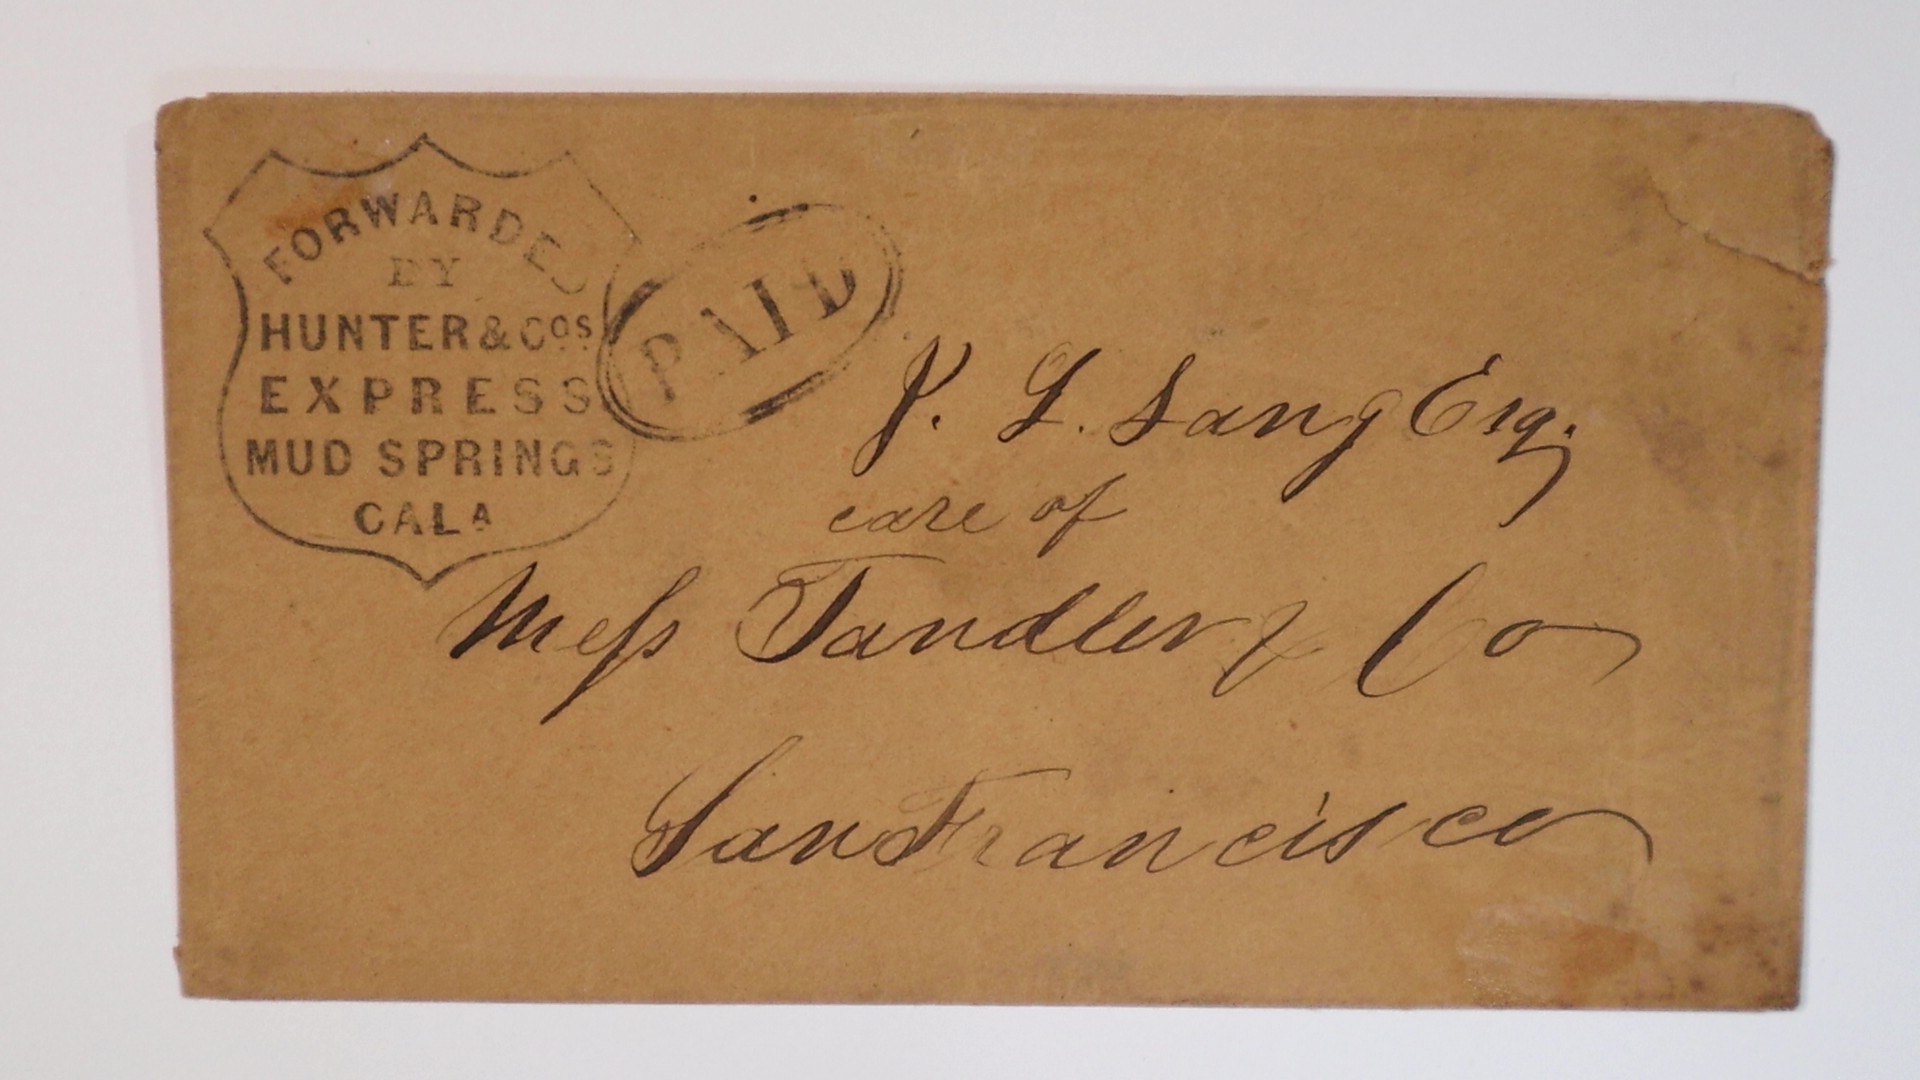 FORWARDED
BY
HUNTER & Cos.
EXPRESS
MUD SPRINGS
CALA
PAID
J. L. Sang Esq.
care of
Mess Tandler & Co
San Francisco